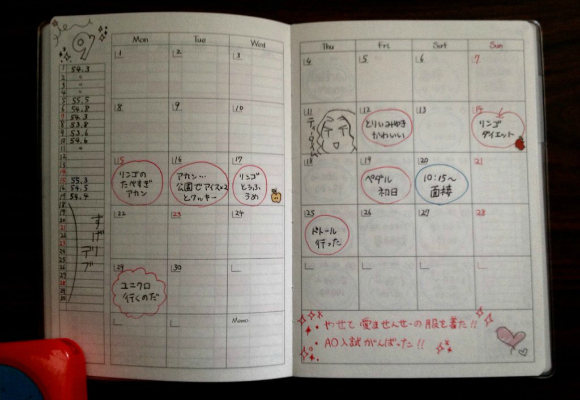 9
Mon Tue Wed
1 54.3
2 〃
3 〃
4 〃
5 55.5
6 54.8
7 54.3
8 53.8
9 53.6
10 54.6
11 〃
12
13
14
15 55.3
16 54.5
17 54.4
18
19
20
21
22
23
24
25
26
27
28
29
30
1 2 3
8 9 10
15 16 17
リンゴの
たべすぎ
アカン
アカン…
公園でアイス×2
とクッキー
リンゴ
とうふ
22 23 24
29 30
ユニクロ
行くのだ
Memo
Thu Fri Sat Sun
4 5 6 7
11 12 13 14
かわいい
リンゴ
ダイエット
18 19 20 21
ペダル
初日
10:15〜
面接
25 26 27 28
ドトール
行った
やせて 愛ませんせーの服を着た!!
AO入試がんばった!!